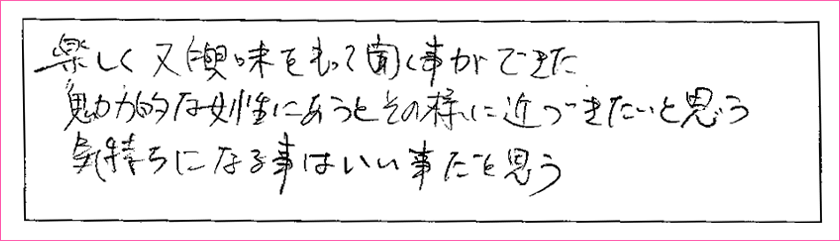 楽しく又興味をもって聞く事ができた
魅力的な女性にあうとその様に近づきたいと思う
気持ちになる事はいい事だと思う